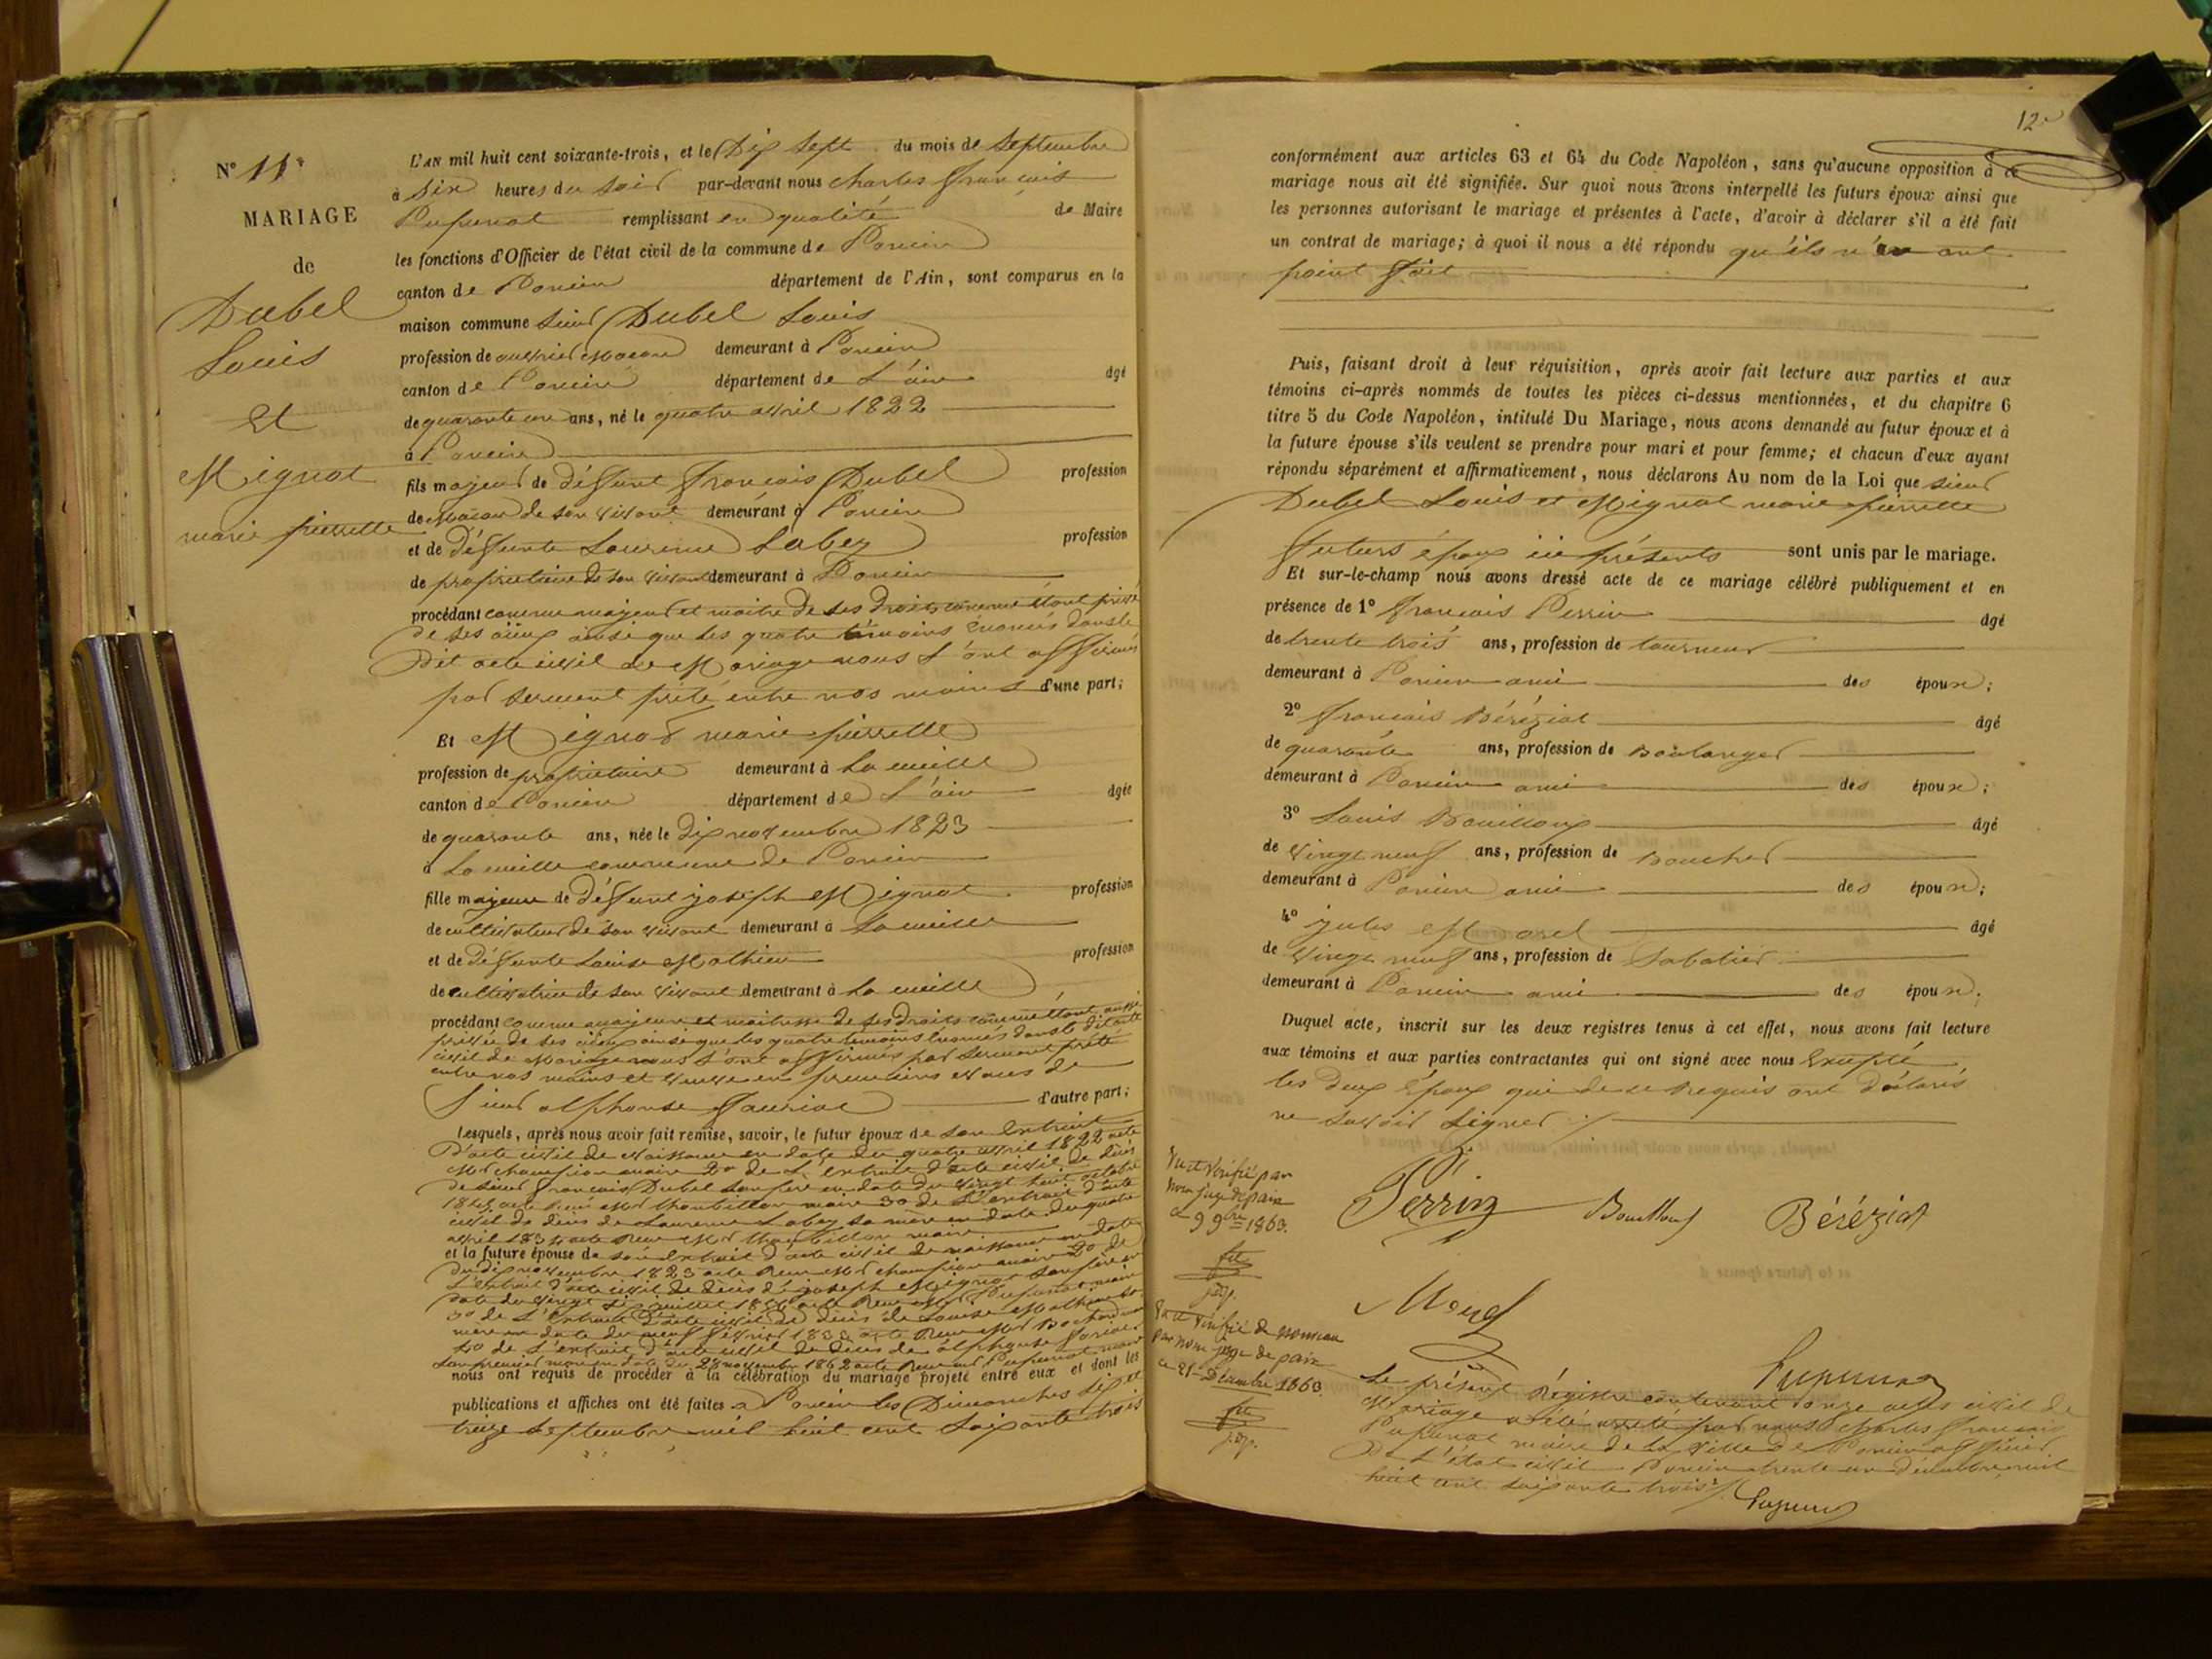 N° 11e
MARIAGE
de
Dubel
Louis
Et
Mignot
marie pierrette
L'AN mil huit cent soixante-trois, et le Dix Sept du mois de Septembre
à Six heures du Soir par-devant nous charles françois
remplissant en qualité de Maire
les fonctions d'Officier de l'état civil de la commune de Poncin
canton de Poncin département de l'Ain, sont comparus en la
maison commune Sieur Dubel Louis
profession de ouvrier Macon demeurant à Poncin
canton de Poncin département de L'ain âgé
de quarante un ans, né le quatre avril 1822
à Poncin
fils majeur de défunt François Dubel profession
de Macon de son vivant demeurant à Poncin
et de défunte Laurence Labey profession
de propriétaire de son vivant demeurant à Poncin
procédant comme majeur et maitre de ses droits comme étant privé
de ses aïeux ainsi que les quatre témoins énoncés dans le
Dit acte civil de Mariage nous l'ont affirmés
par serment prêté entre nos mains d'une part;
Et Mignot marie pierrette
profession de propriétaire demeurant à La cueille
canton de Poncin département de L'ain âgée
de quarante ans, née le dix novembre 1823
à La cueille commune de Poncin
fille majeure de défunt joseph Mignot profession
de cultivateur de son vivant demeurant à La cueille
et de défunte Louise Mathieu profession
de cultivatrice de son vivant demeurant à La cueille
procédant comme majeure et maitresse de ses droits comme étant aussi
privée de ses aïeux ainsi que les quatre témoins énoncés dans le dit acte
civil de Mariage nous l'ont affirmés par serment prêté
entre nos mains et veuve en premières noces de
Sieur alphonse d'autre part;
lesquels, après nous avoir fait remise, savoir, le futur époux de son Extrait
D'acte civil de Naissance en date du quatre avril 1822 acte
Mr champion maire 2o de L'extrait d'acte civil de décès
de Sieur François Dubel son père en date du vingt huit octobre
maire 3o de L'extrait d'acte
civil de décès de Laurence Labey sa mère en date du quatre
avril maire
et la future épouse de son Extrait d'acte civil de naissance en date
du dix novembre 1823 acte Reçu Mr champion maire 2o de
L'extrait d'acte civil de décès de joseph Mignot son père en
date du vingt
3o de L'Extrait d'acte civil de décès de Louise Mathieu sa
mère en date du neuf février
4o de L'extrait d'acte civil de décès de alphonse
son premier mari en date du 28 novembre 1862 acte Reçu
nous ont requis de procéder à la célébration du mariage projeté entre eux et dont les
publications et affiches ont été faites à Poncin les Dimanches Six et
treize Septembre mil huit cent Soixante trois
12e
conformément aux articles 63 et 64 du Code Napoléon, sans qu'aucune opposition à ce
mariage nous ait été signifiée. Sur quoi nous avons interpellé les futurs époux ainsi que
les personnes autorisant le mariage et présentes à l'acte, d'avoir à déclarer s'il a été fait
un contrat de mariage; à quoi il nous a été répondu qu'ils n'en ont
point fait
Puis, faisant droit à leur réquisition, après avoir fait lecture aux parties et aux
témoins ci-après nommés de toutes les pièces ci-dessus mentionnées, et du chapitre 6
titre 5 du Code Napoléon, intitulé Du Mariage, nous avons demandé au futur époux et à
la future épouse s'ils veulent se prendre pour mari et pour femme; et chacun d'eux ayant
répondu séparément et affirmativement, nous déclarons Au nom de la Loi que sieur
Dubel Louis et Mignot marie pierrette
futurs époux ici présents sont unis par le mariage.
Et sur-le-champ nous avons dressé acte de ce mariage célébré publiquement et en
présence de 1° François Perrin âgé
de trente trois ans, profession de tourneur
demeurant à Poncin ami des époux;
2° François Béréziat âgé
de quarante ans, profession de Boulanger
demeurant à Poncin ami des époux;
3° Louis Bouilloux âgé
de vingt neuf ans, profession de Boucher
demeurant à Poncin ami des époux;
4° jules Morel âgé
de vingt neuf ans, profession de Sabotier
demeurant à Poncin ami des époux.
Duquel acte, inscrit sur les deux registres tenus à cet effet, nous avons fait lecture
aux témoins et aux parties contractantes qui ont signé avec nous Excepté
les deux époux qui de ce requis ont déclarés
ne savoir signer ./.
Vu et Vérifié par
Nous juge de paix
ce 9 9bre 1863.
Perrin Bouilloux Béréziat
Morel
Vu et Vérifié de nouveau
par nous juge de paix
ce 21 Décembre 1863.
Le présent Régistre contenant onze actes civil de
Mariage a été arrêté par nous Charles François
maire de la ville de Poncin officier
De L'état civil Poncin trente un décembre mil
huit cent soixante trois ./.